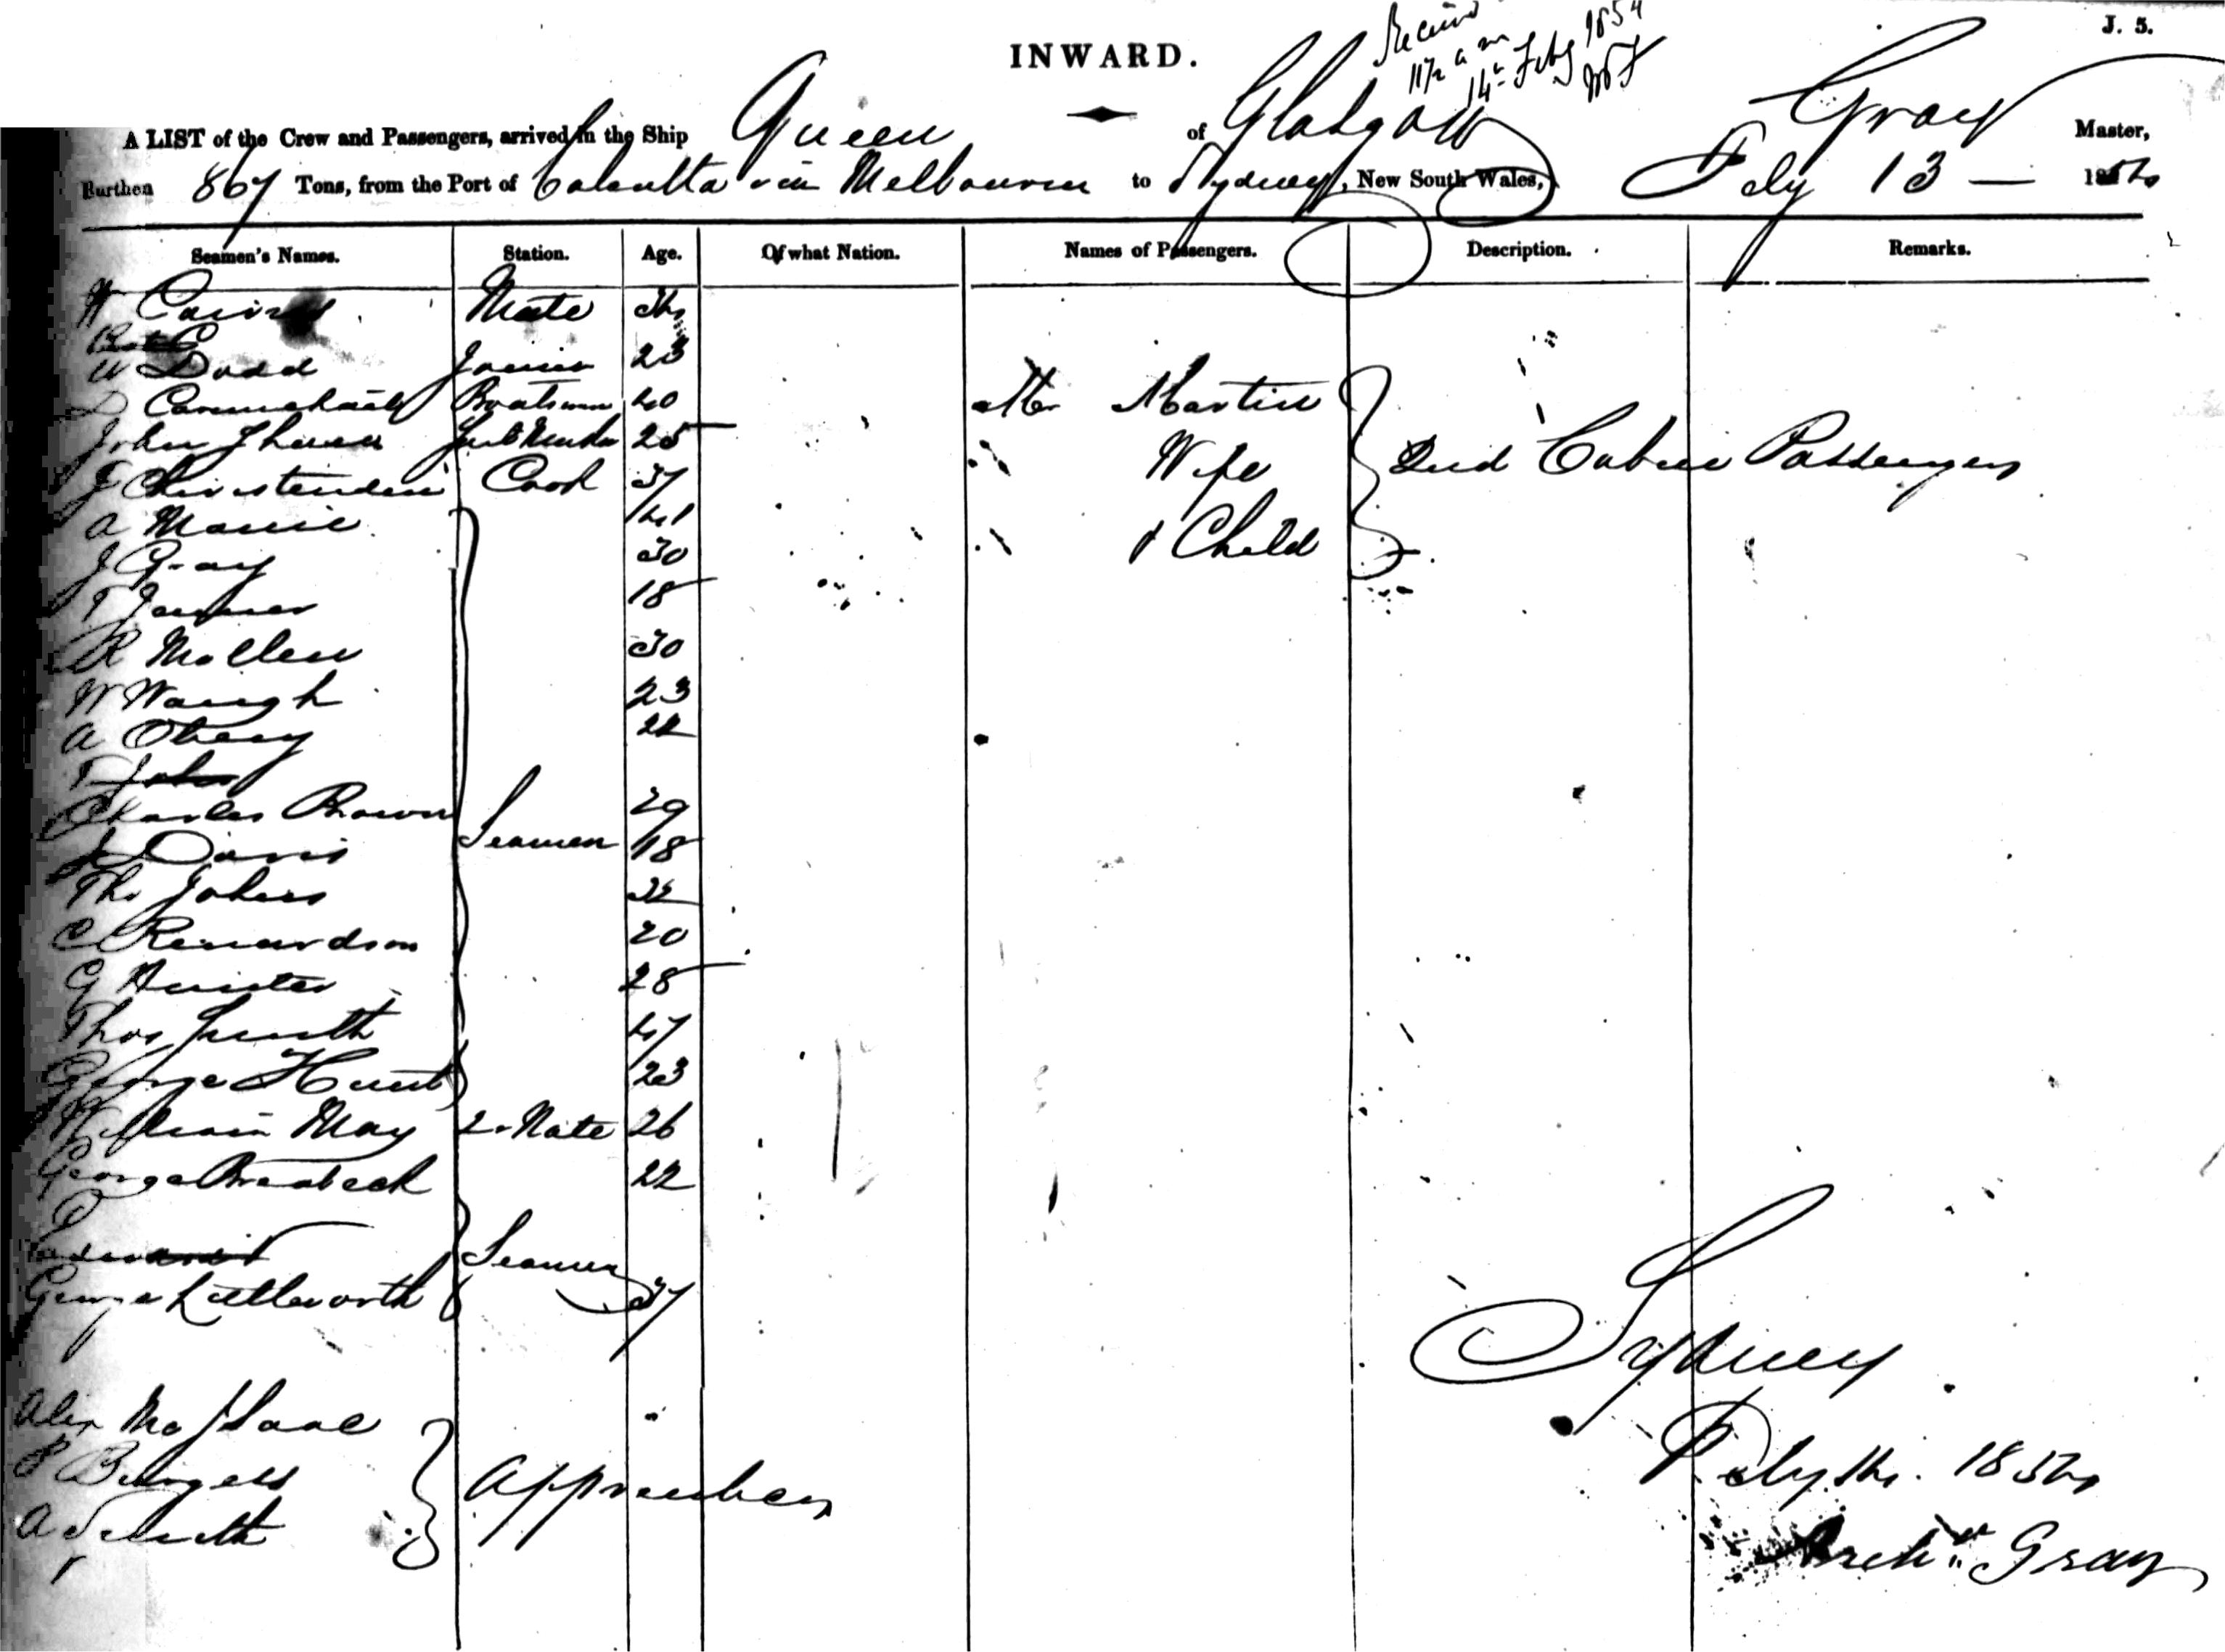 J. 5.
Received
11½ a m
14th Feby 1854
INWARD.
A LIST of the Crew and Passengers, arrived in the Ship Queen of Glasgow Gray Master,
Burthen 867 Tons, from the Port of Calcutta via Melbourne to Sydney, New South Wales, Feby 13 — 1854
Seamen's Names. Station. Age. Of what Nation. Names of Passengers. Description. Remarks.
W Cairns Mate 34
W Dodd Joiner 23
D Carmichael Boatswain 40 Mr Martin
John Sail Maker 25 Wife 2nd Cabin Passengers
J Christensen Cook 37
A 41 1 Child
J Gray 30
T 18
R Mollen 30
W Waugh 23
A 22
T John
Charles Brown Seamen 29
J Davis 18
Tho Johns 32
C Renardson 20
G Hunter 28
Thos Smith 47
George Hunt 23
William May 2nd Mate 26
George 22
Seamen
George Littleworth 37
Sydney
Alex Mc Isaac
P Burgess Feby 14. 1854
A Smith Apprentices
Archd Gray